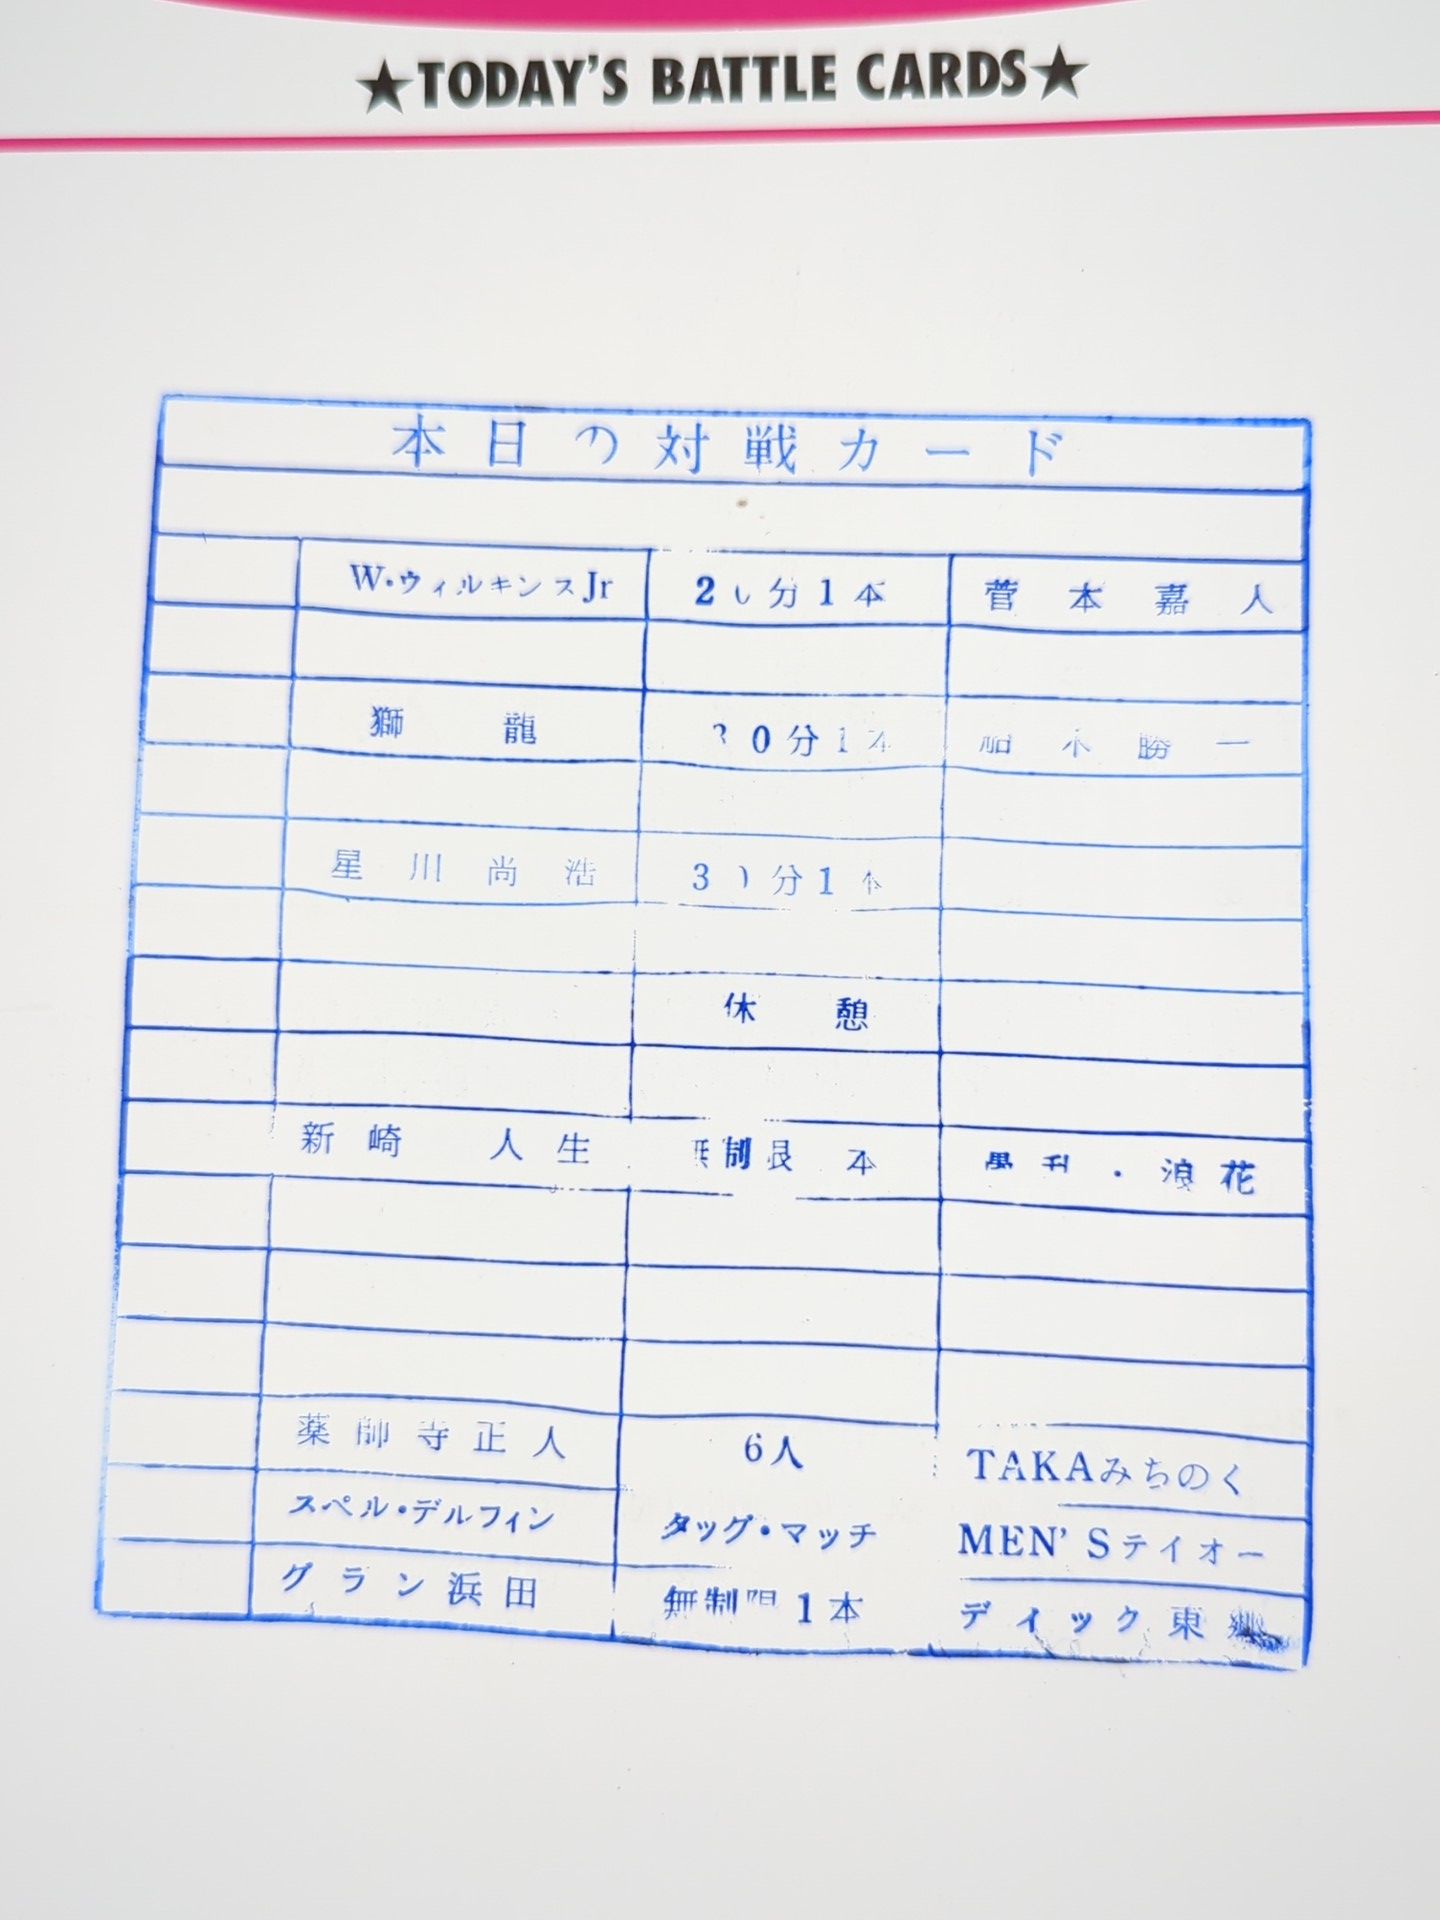 ★TODAY'S BATTLE CARDS★
本日の対戦カード
W・ウィルキンスJr 20分1本 菅本嘉人
獅龍 30分1本 船木勝一
星川尚浩 30分1本
休憩
新崎人生 無制限 本 ・浪花
薬師寺正人 6人 TAKAみちのく
スペル・デルフィン タッグ・マッチ MEN'Sテイオー
グラン浜田 無制限1本 ディック東郷